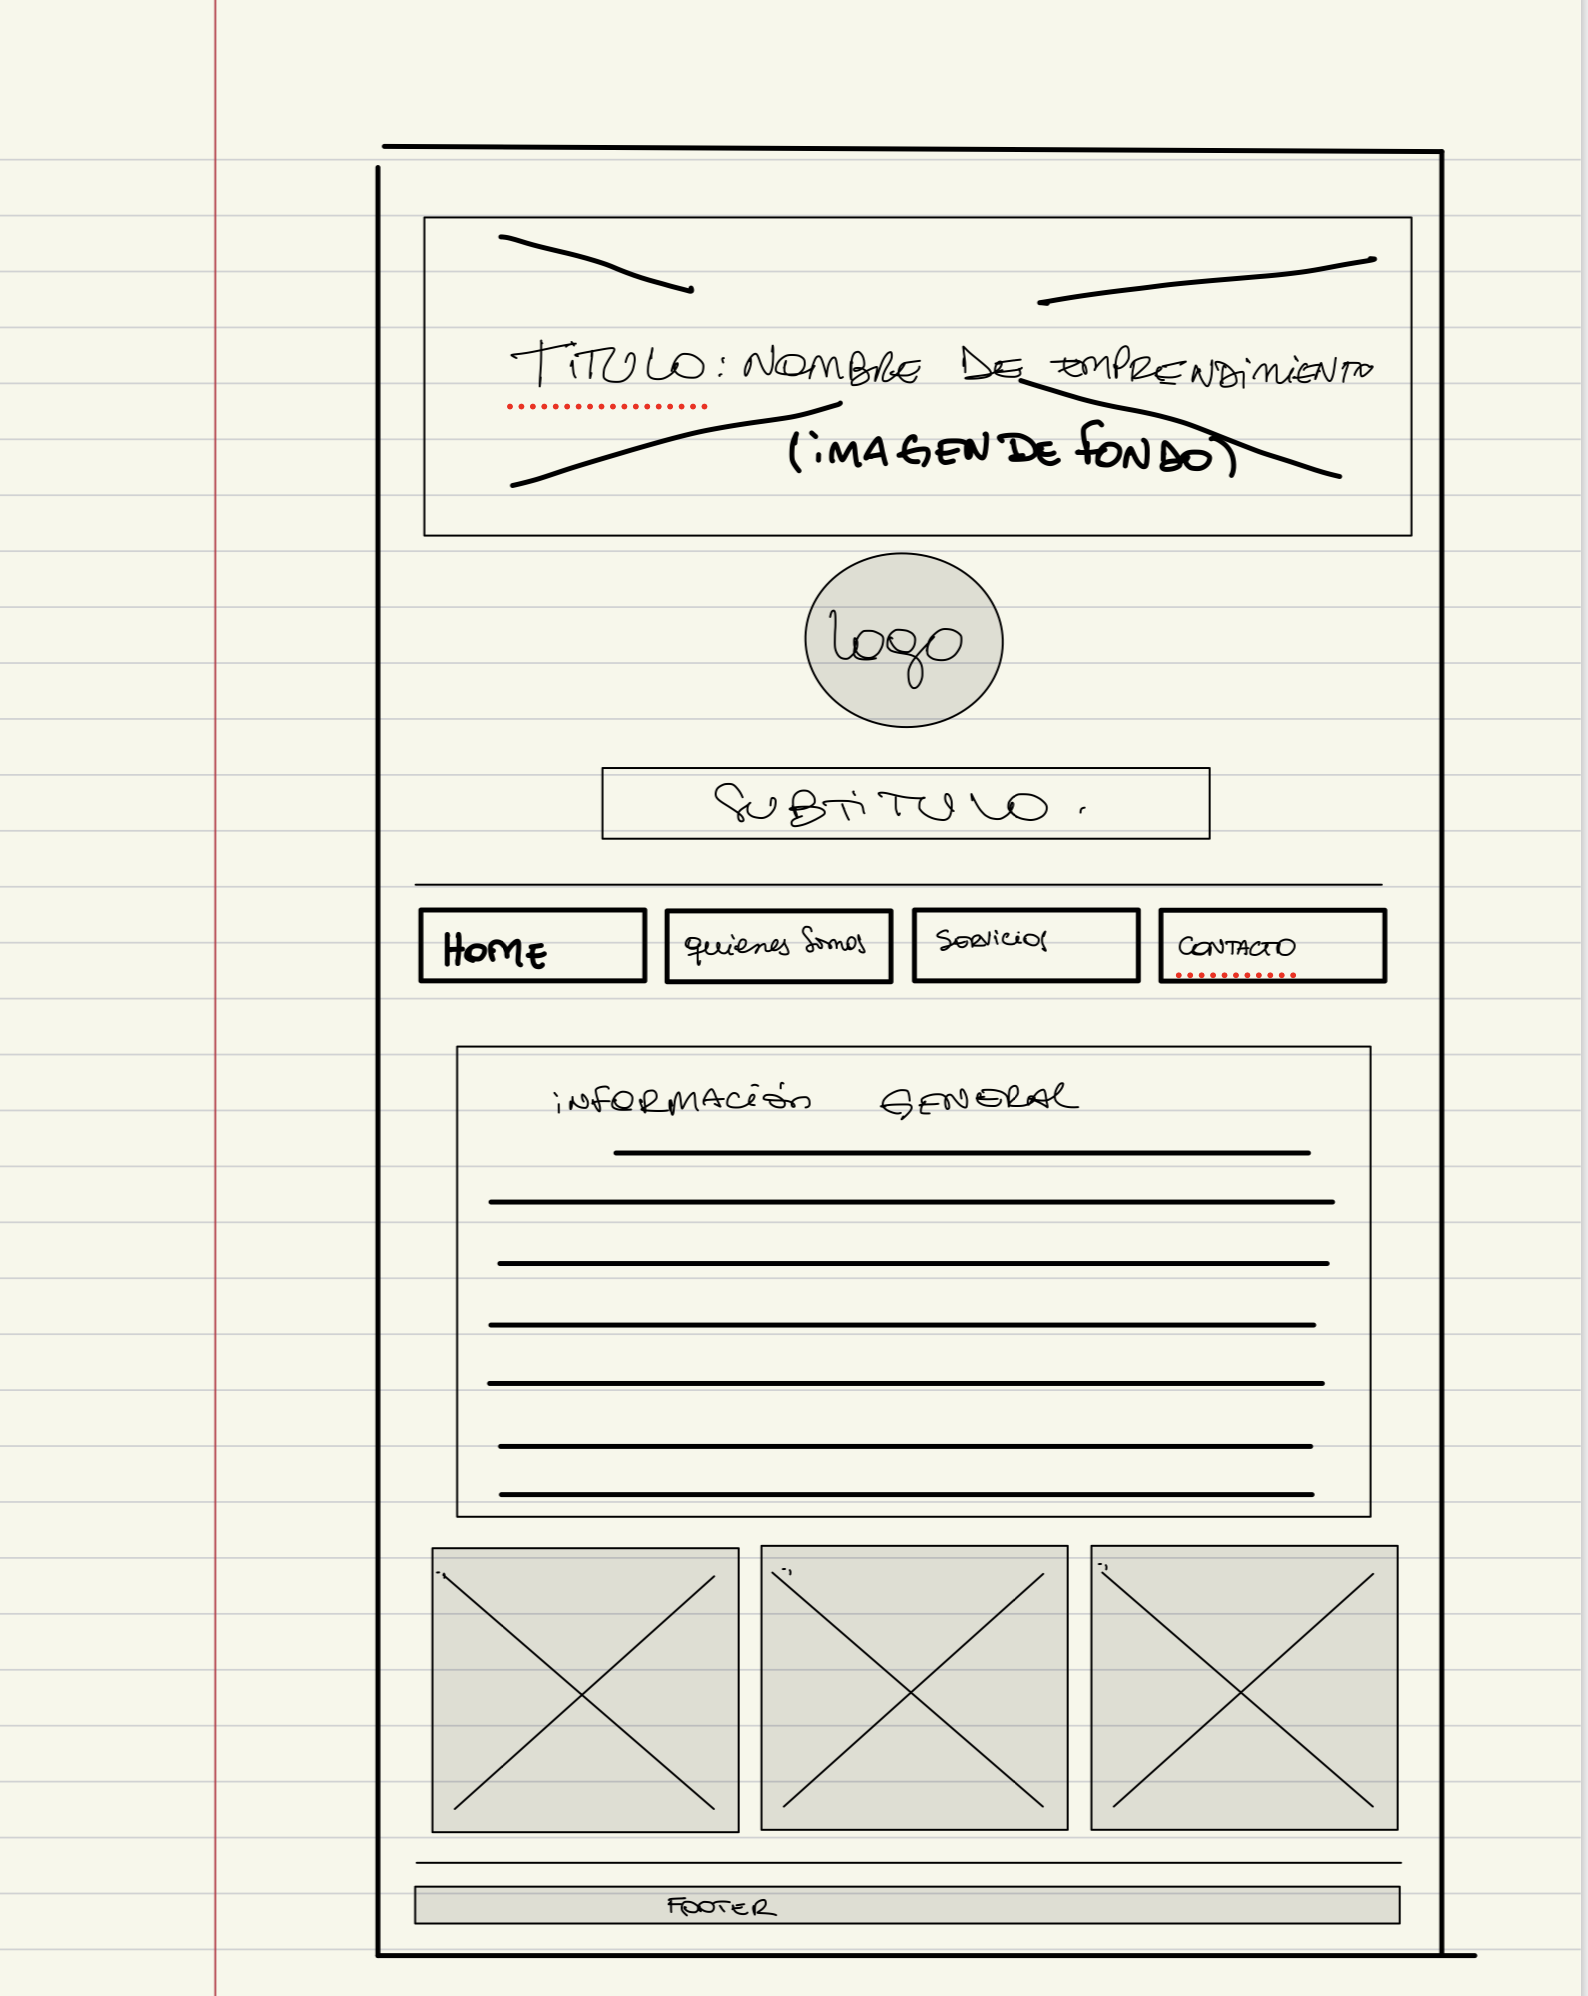 TITULO: NOMBRE DE EMPRENDIMIENTO
(IMAGEN DE FONDO)
Logo
SUBTITULO.
HOME
quienes somos
Servicios
CONTACTO
INFORMACIÓN GENERAL
FOOTER